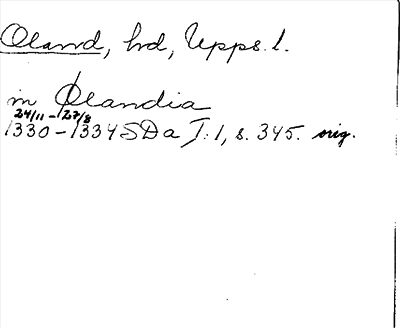 Oland, hd, Upps. l.
in Ølandia
24/11 - 27/8
1330 - 1334 SDa I: 1, s. 345. orig.